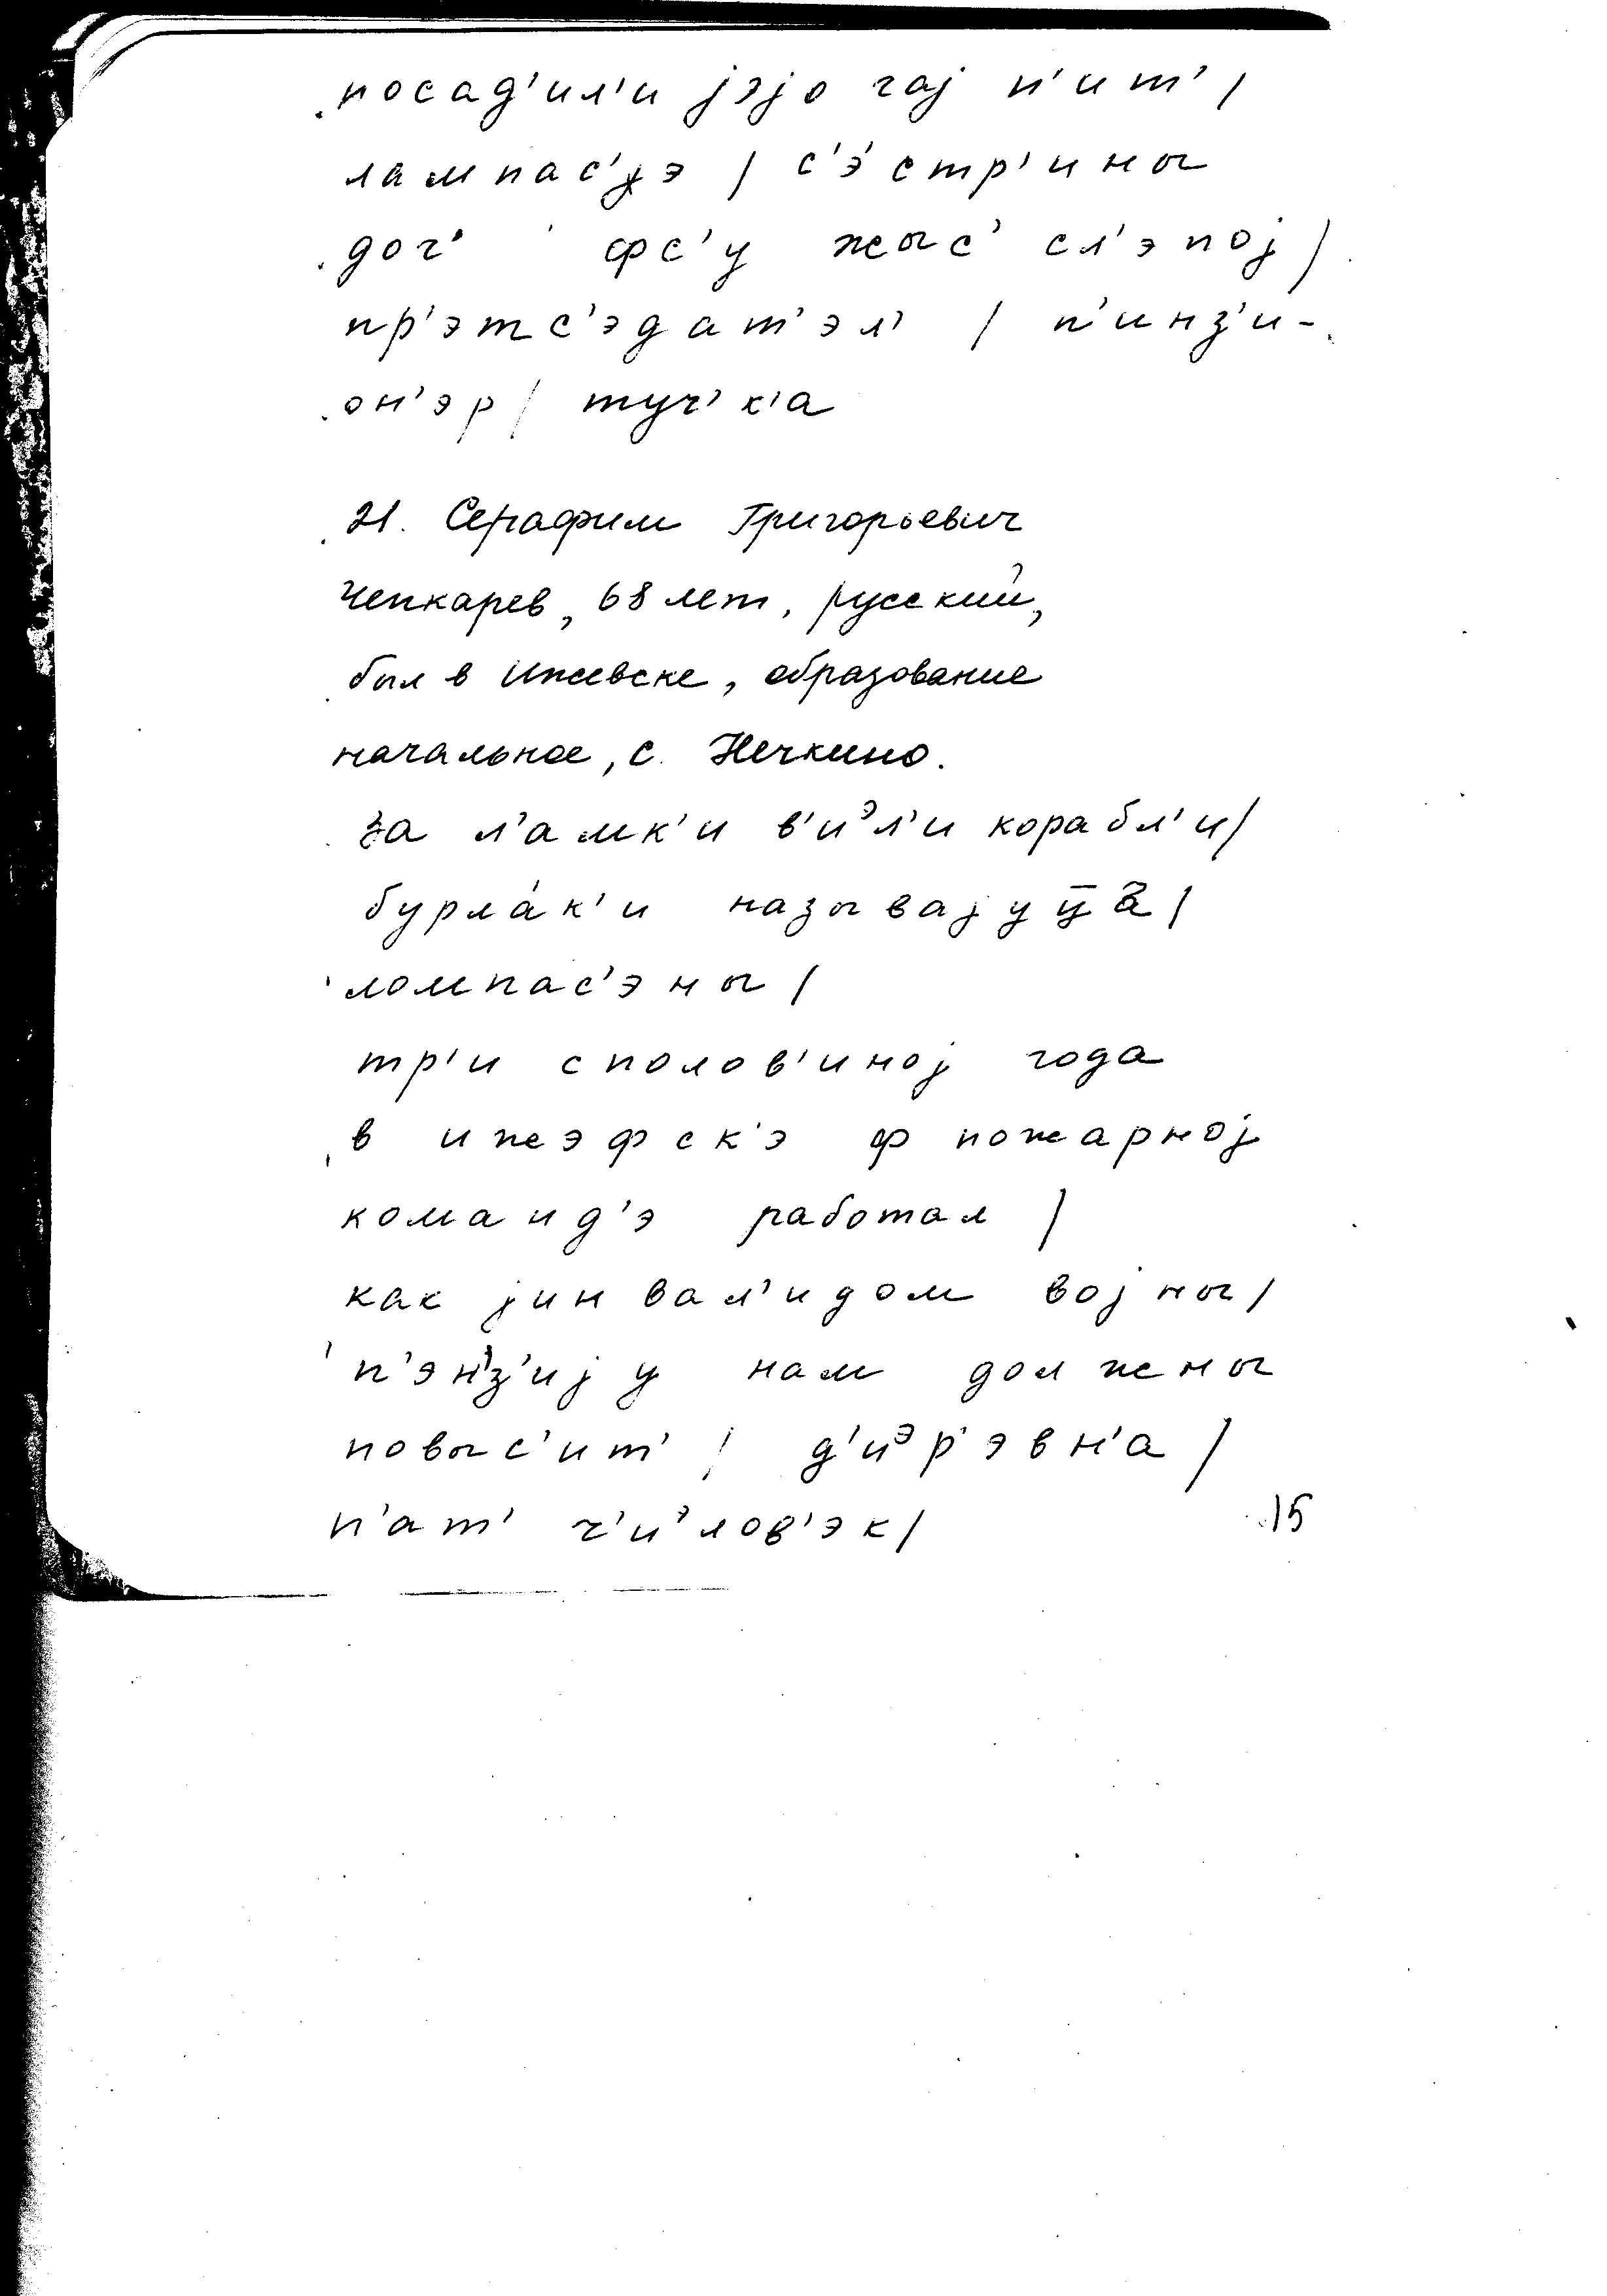 посад'ил'и јэјо чај п'ит' /
лампас'јэ / с'э́стр'ины
доч' фс'у жыс' сл'эпој /
пр'этс'эдат'эл' / п'инз'и-
он'эр / туч'к'а
21. Серафим Григорьевич
Чепкарев, 68 лет, русский,
был в Ижевске, образование
начальное, с. Нечкино.
за л'амк'и в'иᵊл'и корабл'и /
бурла́к'и называјуц̄а /
ломпас'эны /
тр'и сполов'иној года
в ижэфск'э ф пожарној
команд'э работал /
как јинвал'идом војны /
п'эн'з'ију нам должны
повыс'ит' / д'иᵊр'эвн'а /
п'ат' ч'иᵊлов'эк /
15